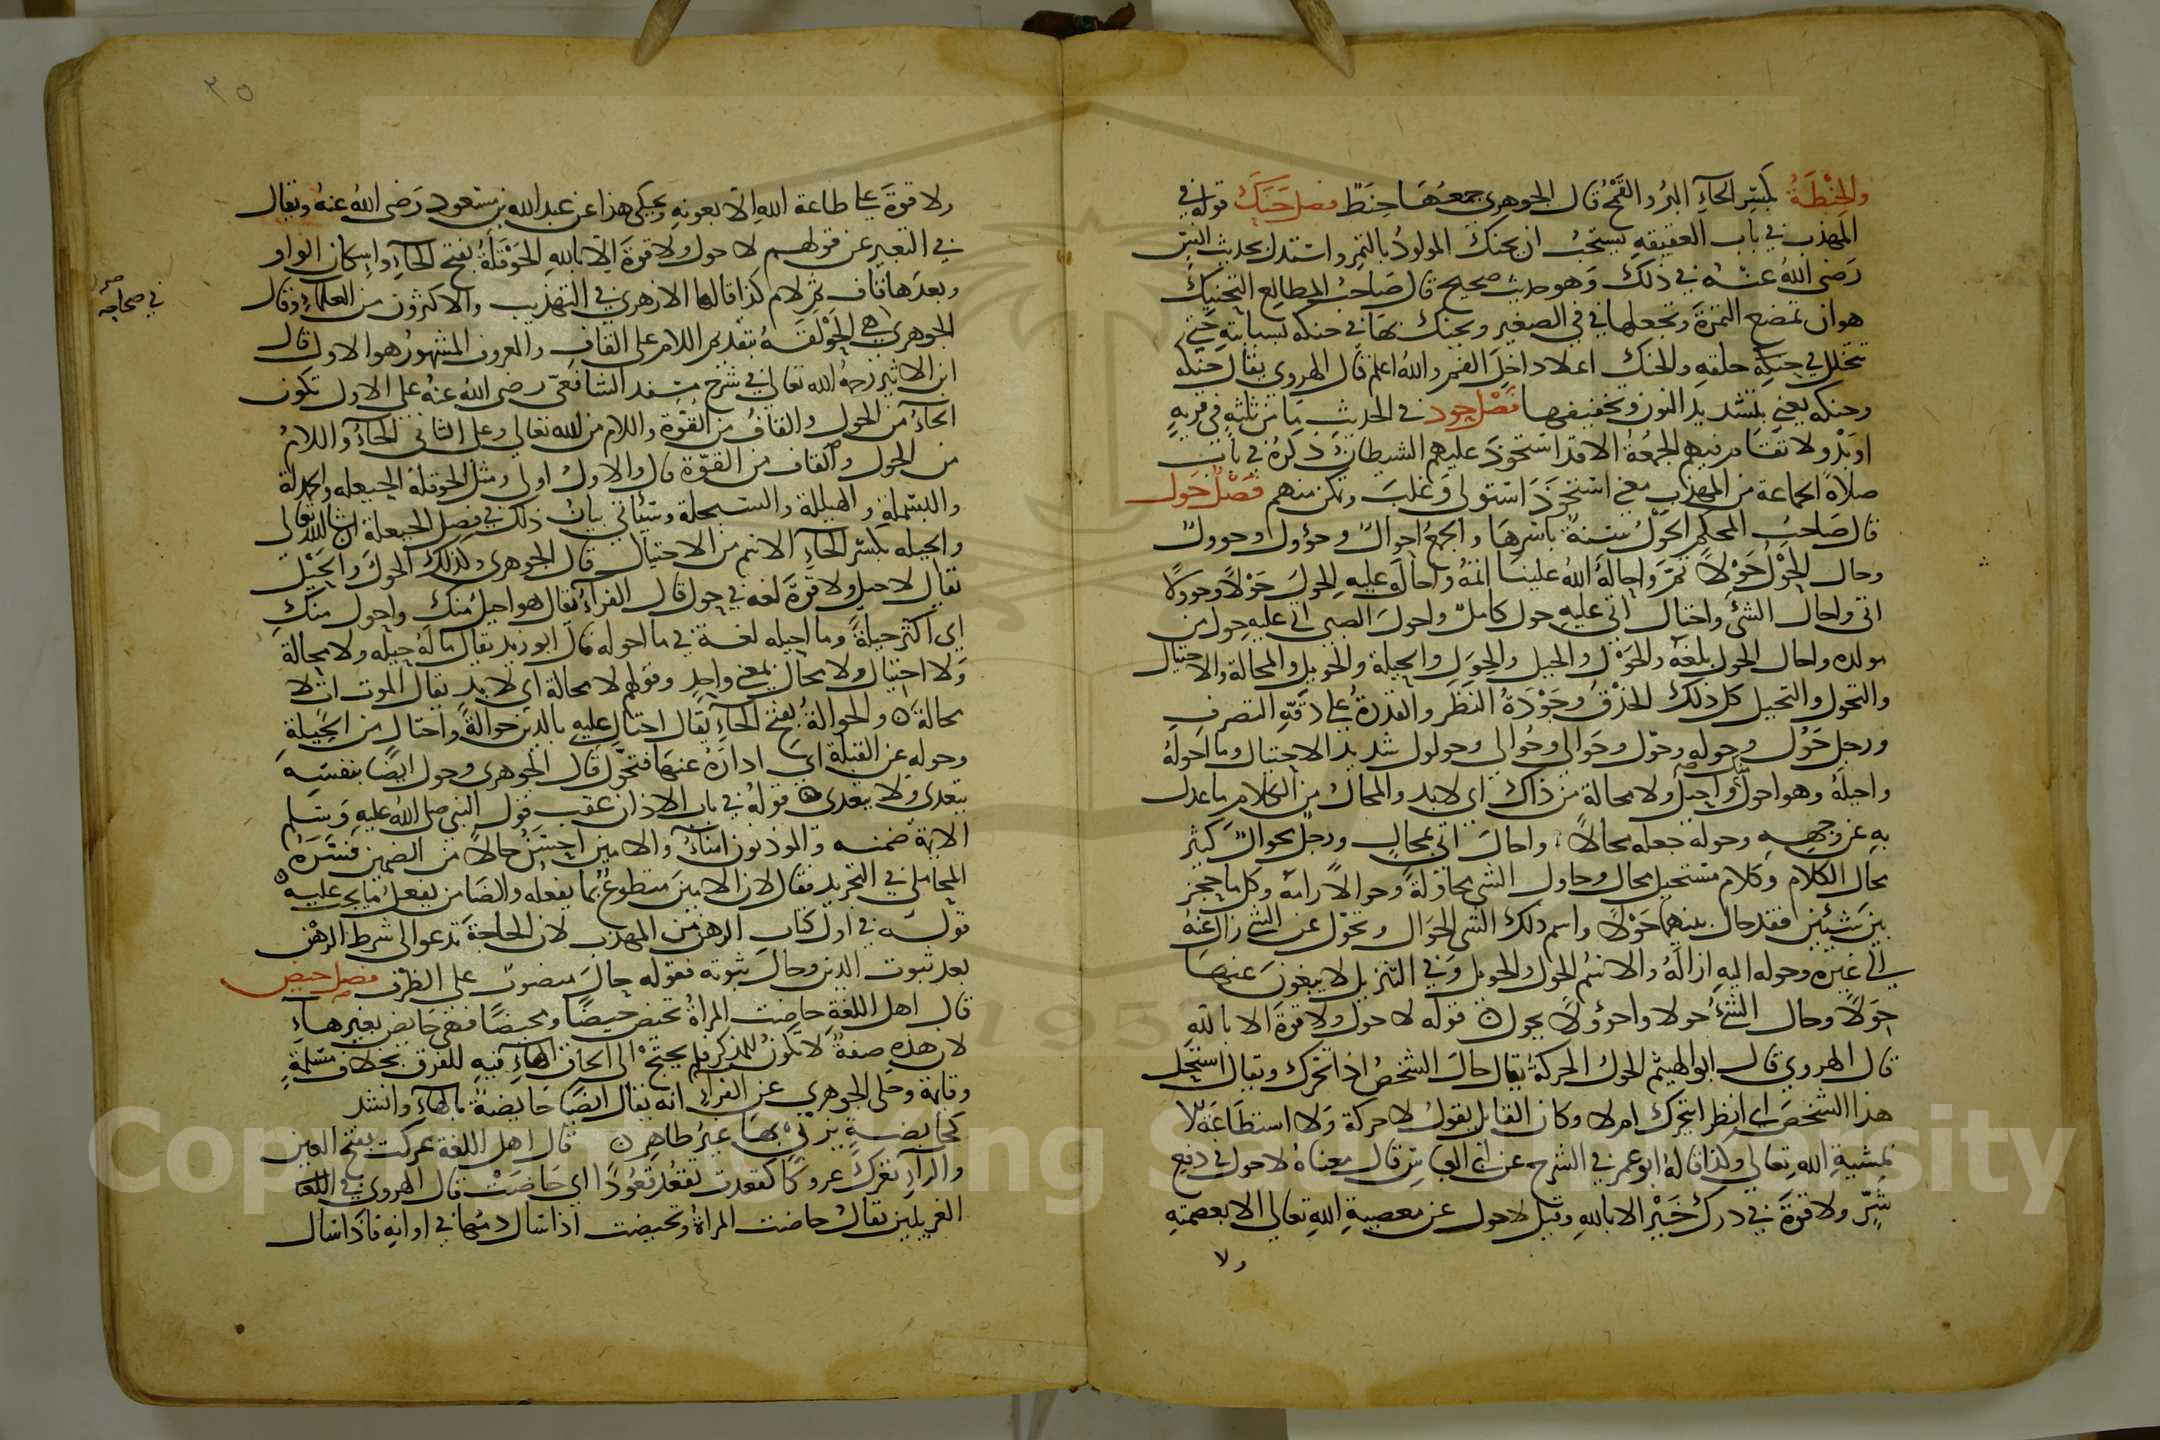 والحِنْطَةُ بكسر الحاءِ البُر والقَمْحُ قال الجوهري جمعُهَا حِنَطٌ فصل حَنَكَ قوله في
المهذب في باب العقيقه يستحبُ ان يحنك المولودُ بالتمر واستدل بحديث انسٍ
رَضى اللهُ عنْهُ في ذلك وَهو حديث صحيح قال صَاحبُ المطالع التحنيك
هو ان تمضغ التمرَةَ وتجعلها في في الصغير ويحنك بهَا في حنكه بسبابته حتى
تتحلل في حَنكِهِ حلقه والحنك اعلا داخلَ الفم والله اعلم قال الهروي يقال حنكه
وحنكه يعني بتشديد النون وتخفيفها فَصْل حوذ في الحديث مَا من ثلثةٍ في قريةٍ
او بَدْوٍ ولا تقَام فيهم الجمعُة الا قد استحوذَ عليهم الشيطان ذكرُهُ في باب
صلاة الجماعة من المهذب معنى اسْتحْوَذَ استولى وَغلبَ وتمكن منهم فَصْلُ حول
قال صَاحبُ المحكم الحَوْلُ سَنةٌ باسْرِهَا والجمعُ احوالٌ وحؤول وحوولٌ
وحال الحَوْلُ حَوْلاً تمَّ واحالهُ اللهُ علينَا اتمهُ واحالَ عليهِ الحولُ حَوْلاً وحوولاً
اتى واحال الشئ واحتال اتى عليهِ حول كاملٌ واحولَ الصبي اتى عليهِ حول من
مولده واحال الحول بلغهُ والحَوْل والحيل والحِوَل والحِيلة والحويل والمحالة والاحتيال
والتحول والتحيل كل ذلك الحذقُ وَجَوْدَةُ النَظَر والقدرةُ على دقةِ التصرفِ
ورجل حَوْل وحوله وحوّل وحَوالي وحُوالي وحولول شديد الاحتيال وما احولهُ
واحيلهُ وهو احول واحيل ولا محالة من ذاك اي لا بد والمحال من الكلام ما عدل
بهِ عن وجههِ وحوله جعله محالاً واحالَ اتى بمحالٍ ورجل محوالٌ كثير
محال الكلام وكلام مستحيل محال وحاول الشي محاولةً وحوالاً رامَهُ وكل ما حجز
بين شيئين فقد حال بينهما حَوْلاً واسم ذلك الشى الحَوَال وتحوّل عن الشى زال عنهُ
الى غيره وحوله اليهِ ازالهُ والاسمُ الحول والحويل وفي التنزيل لا يبغونَ عنهَا
حِوَلاً وحال الشئُ حولا واحؤولاً يحول ن قوله لا حول ولا قوة الا باللهِ
قال الهروي قال ابو الهيثم الحول الحركة يقال حال الشخصُ اذا تحرك ويقال استحِلْ
هذا الشخصَ اي انظر ايتحرك ام لا وكان القايل يقول لا حركة وَلا استطاعَة الا
بمشيةِ اللهِ تعالى وكذا قاله ابو عمر في الشرح عن ابي العباس قال معناهُ لا حول في دفع
شرٍّ ولا قوةَ في درك خَيْرٍ الا باللهِ وقيل لا حول عن معصيةِ اللهِ تعالى الا بعصمتهِ
ولا
٣٥
ولا قوةَ على طاعة اللهِ الا بعونهِ ويحكى هذا عن عبد الله بن مسعود رَضى اللهُ عنهُ ويقال
في التعبير عن قولهم لا حول ولا قوةَ الا باللهِ الحَوْقلَةُ بفتح الحاءِ واسكان الواو
وبعدَها قاف ثم لام كذا قالها الازهري في التهذيب والاكثرون من العلماءِ وقال
الجوهري في صحاحه هي الحَوْلقَةُ بتقديم اللام على القافِ والمعروف المشهورُ هو الاول قال
ابن الاثير رحمهُ الله تعالى في شرح مسند الشافعي رضى الله عنهُ على الاول تكون
الحاءُ من الحول والقافُ من القُوة واللام من الله تعالى وعلى الثاني الحاءُ واللامُ
من الحول والقاف من القوّة قال والاول اولى ومثل الحوقلة الحيعله والحمدلة
والبَسْملةُ والهيللة والسبحلة وسَيَأتي بيانُ ذلك في فصل الحيعلة ان شا الله تعالى
والحيله بكسْر الحاءِ الاسم من الاحتيال قال الجوهري وكذلك الحولُ والحَيْل
يقال لا حيل ولا قوّةَ لغه في حول قال الفرآءُ يقال هو احيل منك واحول منك
اي اكثر حيلةً وما احيله لغة في ما احوله قال ابو زيد يقال ما لهُ حيله ولا محالة
وَلا احتيال ولا محال بمعنى واحدٍ وقولهم لا محالة اي لا بد يقال الموت ات لا
محالة ن والحوالةُ بفتح الحاءِ يقال احتال عليهِ بالدين حوالةً واحتال من الحِيلةِ
وحوله عن القبلةِ اى ادارَهُ عنهَا فتحوّل قال الجوهري وحول ايضًا بنفسِهِ
يتعدى ولا يتعدى ن قوله في باب الاذان عقب قول النبي صلى اللهُ عليهِ وَسَلم
الايمة ضمنه والموذنون امناءُ والامين احسَنُ حالاً من الضمين فسّرَهُ
المحاملي في التجريد فقال لان الامينَ متطوعٌ بما يفعله والضَامن يفعلُ مَا يجب عليهِ
قوله في اول كتاب الرهن من المهذب لان الحاجَةَ تدعو الى شرط الرهْن
بعد ثبوت الدين وحالَ ثبوته فقوله حالَ منصوبٌ على الظرْف فصل حيض
قال اهل اللغةِ حاضت المرأةُ تحيض حيضًا ومحيضًا فهى حَايض بغير هاءٍ
لان هذهِ صفةٌ لا تكُونُ للمذكر فلم يحتجْ الى الحاق الهاءِ فيهِ للفرق بخلاف مسلمةٍ
وقايمة وحكى الجوهري عن الفراءِ انه يقال ايضًا حَايضة بالهاءِ وانشد
كحَايضةٍ يزنى بهَا غيرُ طاهر ن قال اهل اللغة عركت بفتح العين
والراءِ تعرك عروكًا كقعدت تقعُد قعُودًا اي حَاضَتْ قال الهروي في اللغة
الغريبين يقال حاضت المرأةُ وتحيضت اذا سال دمهُا في اوانِهِ فاذا سَال